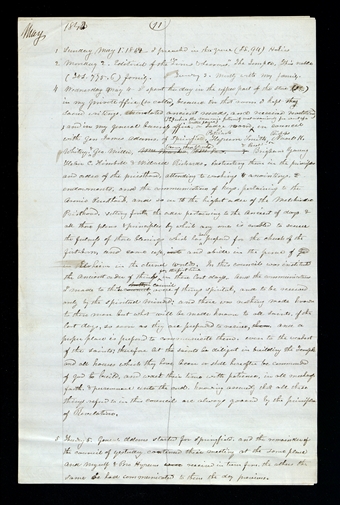 May, 1842 (11)
1 Sunday, May 1. 1842. I preached in the grove
4 Wednesday May 4 I spent the day in the upper part of the store
in my private office (so called, because in that room I kept my
sacred writings,
and in my general business office,
with Gen James Adams, of Springfield, Hyrum Smith,
Whitney, Geo Miller, Brigham Young
Heber C. Kimball & Willard Richards, instructing them in the principles
and order of the priesthood, attending to washings & anointings, &
endowments, and the communications of keys, pertaining to the
Aaronic Priesthood, and so on to the highest order of the Melchisedec
Priesthood, setting forth the order pertaining to the Ancient of days &
all those plans & principles by which any one is enabled to secure
the fulness of those blessings which has been prepared for the church of the
firstborn, and come up into and abide in the presence of
Eloheim in the eternal worlds. In this council was instituted
the Ancient order of things for the first time in these last days. And the communications
I made to this council were of things spiritual, and to be received
only by the spiritual minded; and there was nothing made known
to these men but what will be made known to all saints, of the
last days, so soon as they are prepared to receive, and a
proper place is prepared to communicate them, even to the weakest
of the saints; therefore let the saints be diligent in building the Temple
and all houses which they have been or shall hereafter be commanded
of god to build, and wait their time with patience, in all meekness
faith, & perseverance unto the end. knowing assuredly that all these
things refered to in this council are always governed by the principles
of Revelation.
5 Thursday 5. General Adams started for Springfield, and the remainder of
the council of yesterday continued their meeting at the same place
and myself & Bro Hyrum received in turn from the others, the
same I had communicated to them the day previous.